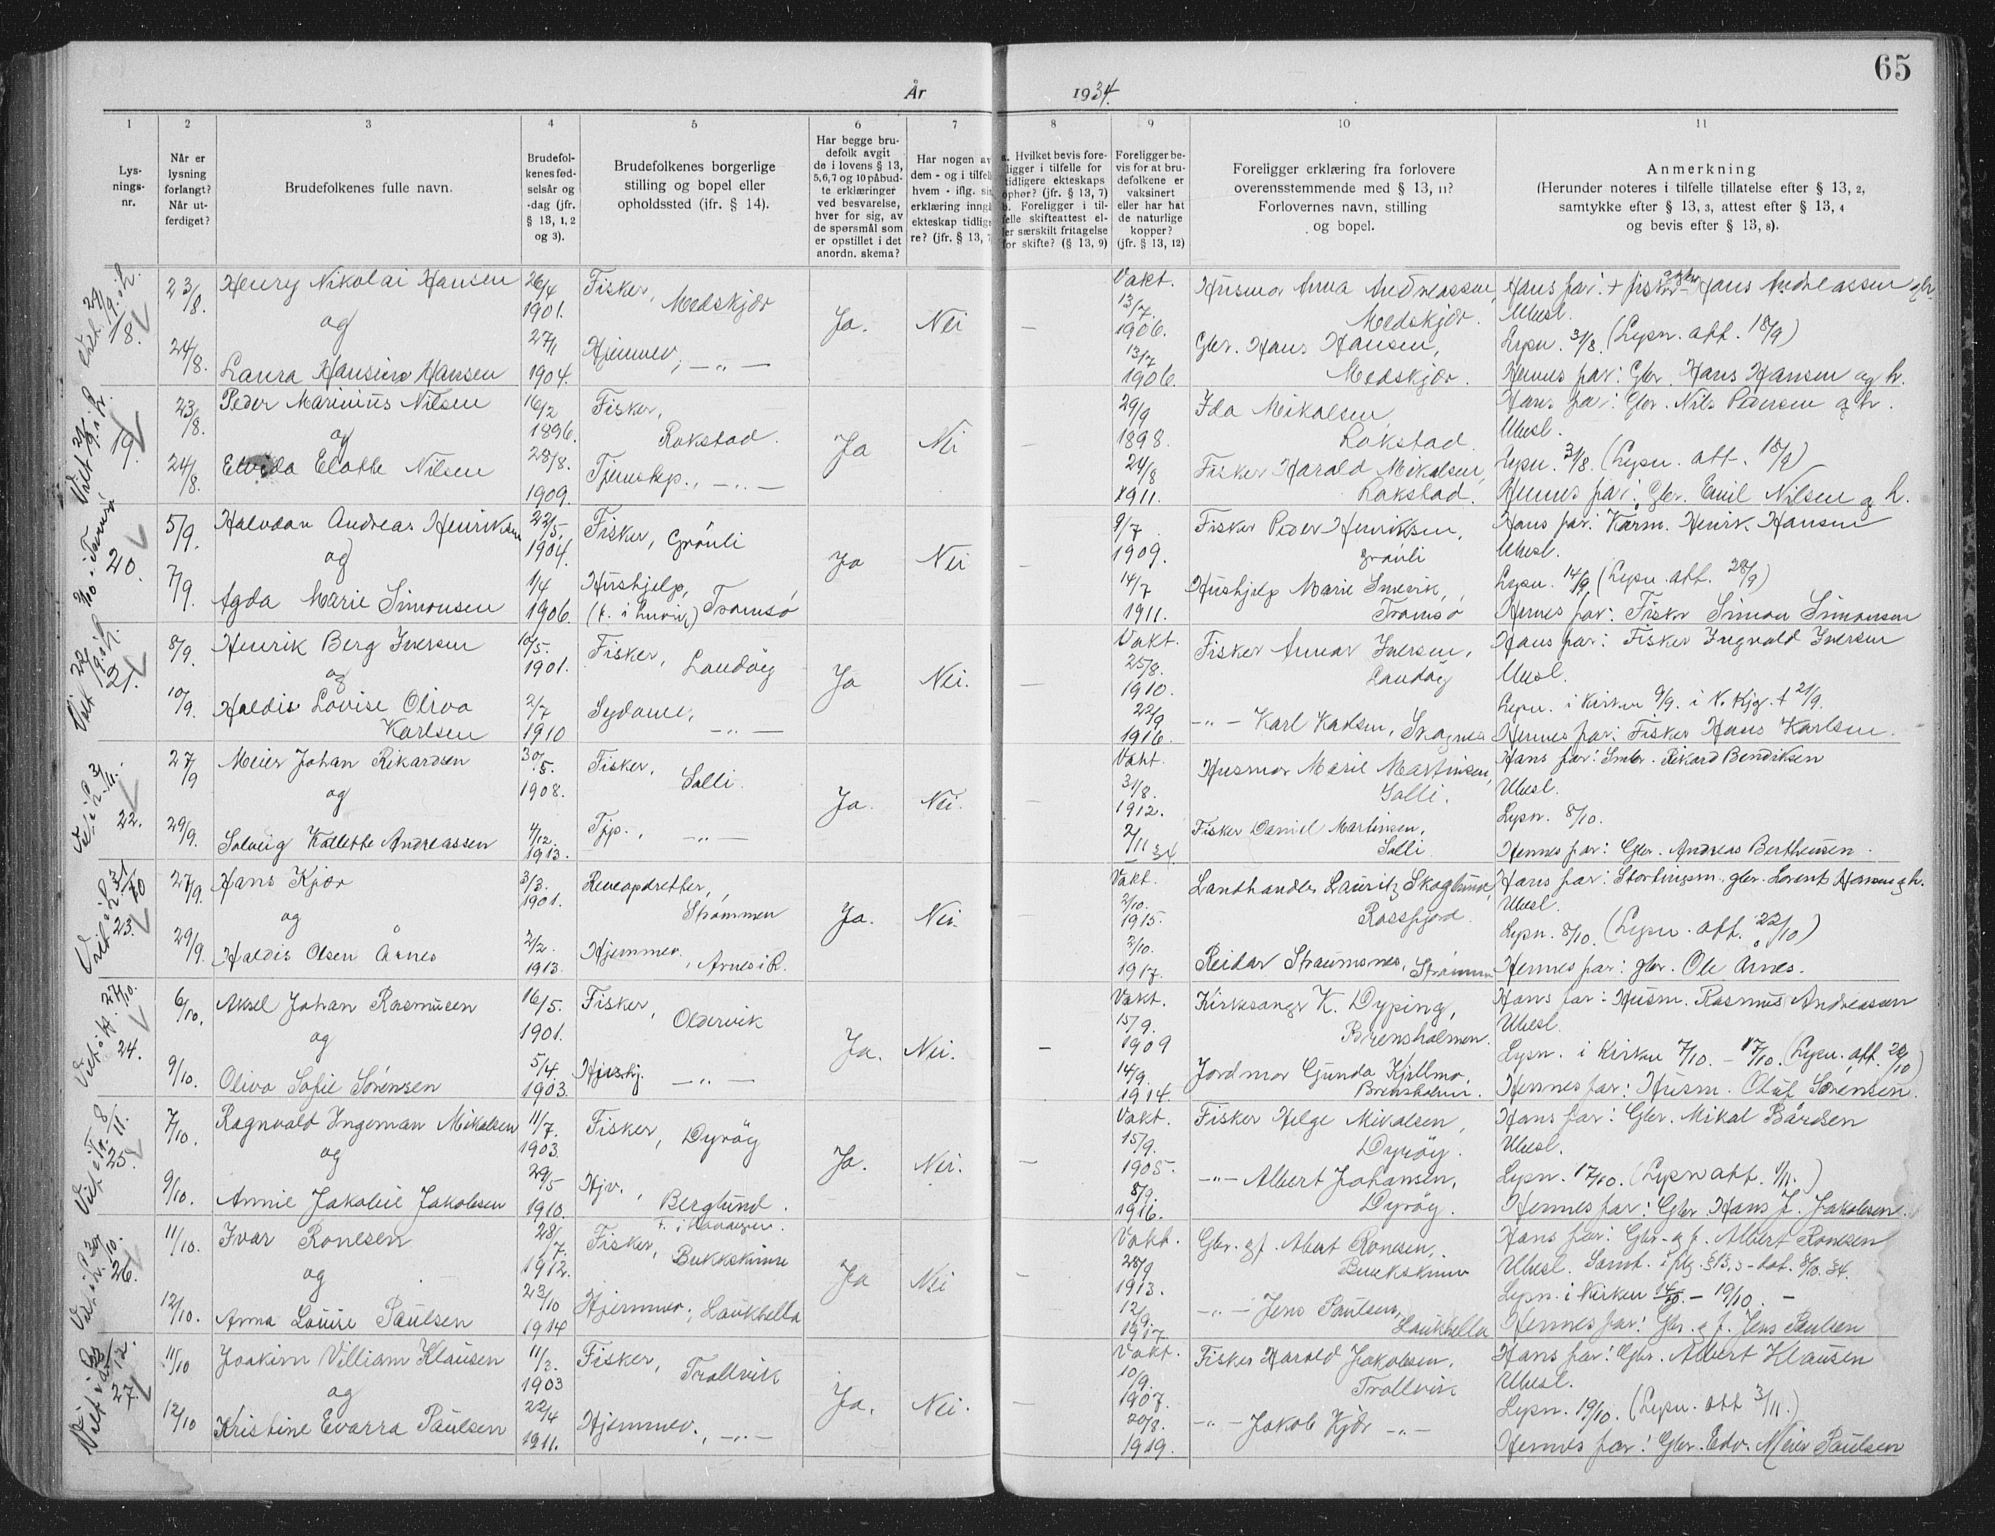 65
År 1934.
1 2 3 4 5 6 7 8 9 10 11
Lysningsnr.
Når er lysning forlangt? Når utferdiget?
Brudefolkenes fulle navn.
Brudefolkenes fødselsår og -dag (jfr. § 13, 1, 2 og 3).
Brudefolkenes borgerlige stilling og bopel eller opholdssted (ifr. § 14).
Har begge brudefolk avgit de i lovens § 13, 5,6,7 og 10 påbudte erklæringer ved besvarelse, hver for sig, av de spørsmål som er opstillet i det anordn. skema?
Har nogen av dem - og i tilfelle hvem - iflg. sin erklæring inngå ekteskap tidligere? (jfr. § 13, 7
a. Hvilket bevis foreligger i tilfelle for tidligere ekteskaps ophør? (jfr. § 13, 7) b. Foreligger i tilfelle skifteattest eller særskilt fritagelse for skifte? (§ 13, 9)
Foreligger bevis for at brudefolkene er vaksinert eller har hat de naturlige kopper? (jfr. § 13, 12)
Foreligger erklæring fra forlovere overensstemmende med § 13, 11? Forlovernes navn, stilling og bopel.
Anmerkning
(Herunder noteres i tilfelle tillatelse efter § 13, 2, samtykke efter § 13, 3, attest efter § 13, 4 og bevis efter § 13, 8).
18.
23/8.
24/8.
Henry Nikolai Hansen
og
Laura Hansine Hansen
26/4 1901.
27/1 1904.
Fisker, Medskjær
Hjemmev., — " —
Ja.
Nei
—
Vakt.
13/7 1906.
13/7 1906.
Husmor Anna Andreassen, Medskjær.
Gbr. Hans Hansen, Medskjær.
Hans par: + fisker Hans Andreassen og h.
Ubesl.
Lysn. 31/8. (Lysn. att. 18/9)
Hennes par: Gbr. Hans Hansen og h.
19.
23/8.
24/8.
Peder Marinius Nilsen
og
Elotte Nilsen
16/2 1896.
28/8. 1909.
Fisker, Rakstad.
Tjenestep., — " —
Ja
Nei
—
29/9 1898.
24/8 1911.
Ida Mikalsen, Rakstad.
Fisker Harald Mikalsen, Rakstad.
Hans par: Gbr. Nils Pedersen og h.
Ubesl.
Lysn. 31/8. (Lysn. att. 18/9)
Hennes par: Gbr. Emil Nilsen og h.
20.
5/9.
7/9.
Halvdan Andreas Henriksen
og
Agda Marie Simonsen
22/5. 1904.
1/4 1906.
Fisker, Grønli
Hushjelp, Tromsø
Ja
Nei
—
9/7 1909.
14/7 1911.
Fisker Peder Henriksen, Grønli
Hushjelp Marie, Tromsø
Hans par: Kårm. Henrik Hansen
Ubesl.
Lysn. 14/9 (Lysn. att. 28/9)
Hennes par: Fisker Simon Simonsen
21.
8/9.
10/9.
Henrik Berg Iversen
og
Haldis Lovise Oliva Karlsen
10/5. 1901.
2/7 1910
Fisker, Sandøy
Sydame, — " —
Ja
Nei.
—
Vakt.
25/8. 1910.
22/9 1916.
Fisker Annar Iversen, Sandøy
— " — Karl Karlsen, Skognes
Hans par: Fisker Ingvald Iversen
Ubesl.
Lysn. i kirken 9/9. i N. Kjg. + 21/9.
Hennes par: Fisker Hans Karlsen.
22.
27/9
29/9.
Meier Johan Rikardsen
og
Solveig Kallette Andreassen
30/5. 1908.
4/12. 1913.
Fisker, Solli.
Tjp., — " —
Ja.
Nei.
—
Vakt.
31/8. 1912.
2/11 34
Husmor Marie Martinsen, Solli.
Fisker Daniel Martinsen, Solli
Hans par: Smbr. Rikard Bendiksen
Ubesl.
Lysn. 8/10.
Hennes par: Gbr. Andreas Bertheusen.
23.
27/9.
29/9.
Hans Kjær
og
Haldis Olsen Årnes
3/3. 1901.
2/2. 1913.
Reveopdretter, Strømmen
Hjemmev., Årnes i R.
Ja.
Nei.
—
Vakt.
2/10. 1915.
2/10. 1917.
Landhandler Lauritz Skoglund, Rossfjord.
Reidar Straumsnes, Strømmen
Hans par: Stortingsm. gbr. Lorent Hansen og h.
Ubesl.
Lysn. 8/10. (Lysn. att. 22/10)
Hennes par: Gbr. Ole Årnes.
24.
6/10.
9/10.
Aksel Johan Rasmusen
og
Oliva Sofie Sørensen
16/5. 1901.
5/4. 1903.
Fisker, Oldervik
Hushj. — " —
Ja.
Nei.
—
Vakt.
15/9. 1909
14/9. 1914.
Kirkesanger K. Dyping, Brensholmen.
Jordmor Gunda Kjellmo, Brensholmen.
Hans par: Husm. Rasmus Andreassen
Ubesl.
Lysn. i kirken 7/10. — 17/10. (Lysn. att. 20/10)
Hennes par: Husm. Oluf Sørensen.
25.
7/10.
9/10.
Ragnvald Ingeman Mikalsen
og
Annie Jakobie Jakobsen
11/7. 1903.
29/5 1910.
Fisker, Dyrøy
Hjv., Berglund.
Ja.
Nei.
—
Vakt.
15/9. 1905.
8/9. 1916.
Fisker Helge Mikalsen, Dyrøy.
— " — Albert Johansen, Dyrøy.
Hans par: Gbr. Mikal Bårdsen
Ubesl.
Lysn. 17/10. (Lysn att. 1/11.)
Hennes par: Gbr. Hans J. Jakobsen.
26.
11/10.
12/10.
Ivar Ronesen
og
Anna Louise Paulsen
28/7. 1912.
23/10 1914
Fisker, Bukkskinne
Hjemmev., Laukhella
Ja
Nei
—
Vakt.
28/9 1913.
12/9. 1917.
Gbr. og f. Albert Ronesen, Bukkskinn
— " — Jens Paulsen, Laukhella
Hans par: Gbr. og f. Albert Ronesen
Ubesl. Samt. iflg. § 13, 3 - dat. 8/10. 34.
Lysn. i kirken 14/10. — 19/10. —
Hennes par: Gbr. og f. Jens Paulsen
27.
11/10
12/10
Joakim Villiam Klausen
og
Kristine Evarra Paulsen
11/3. 1903
22/4 1911.
Fisker, Trollvik
Hjemmev., — " —
Ja.
Nei.
—
Vakt.
10/9. 1907.
20/8. 1919.
Fisker Harald Jakobsen, Trollvik
— " — Jakob Kjær — " —
Hans par: Gbr. Albert Klausen
Ubesl.
Lysn. 19/10. (Lysn. att 3/11.)
Hennes par: Gbr. Edv. Meier Paulsen